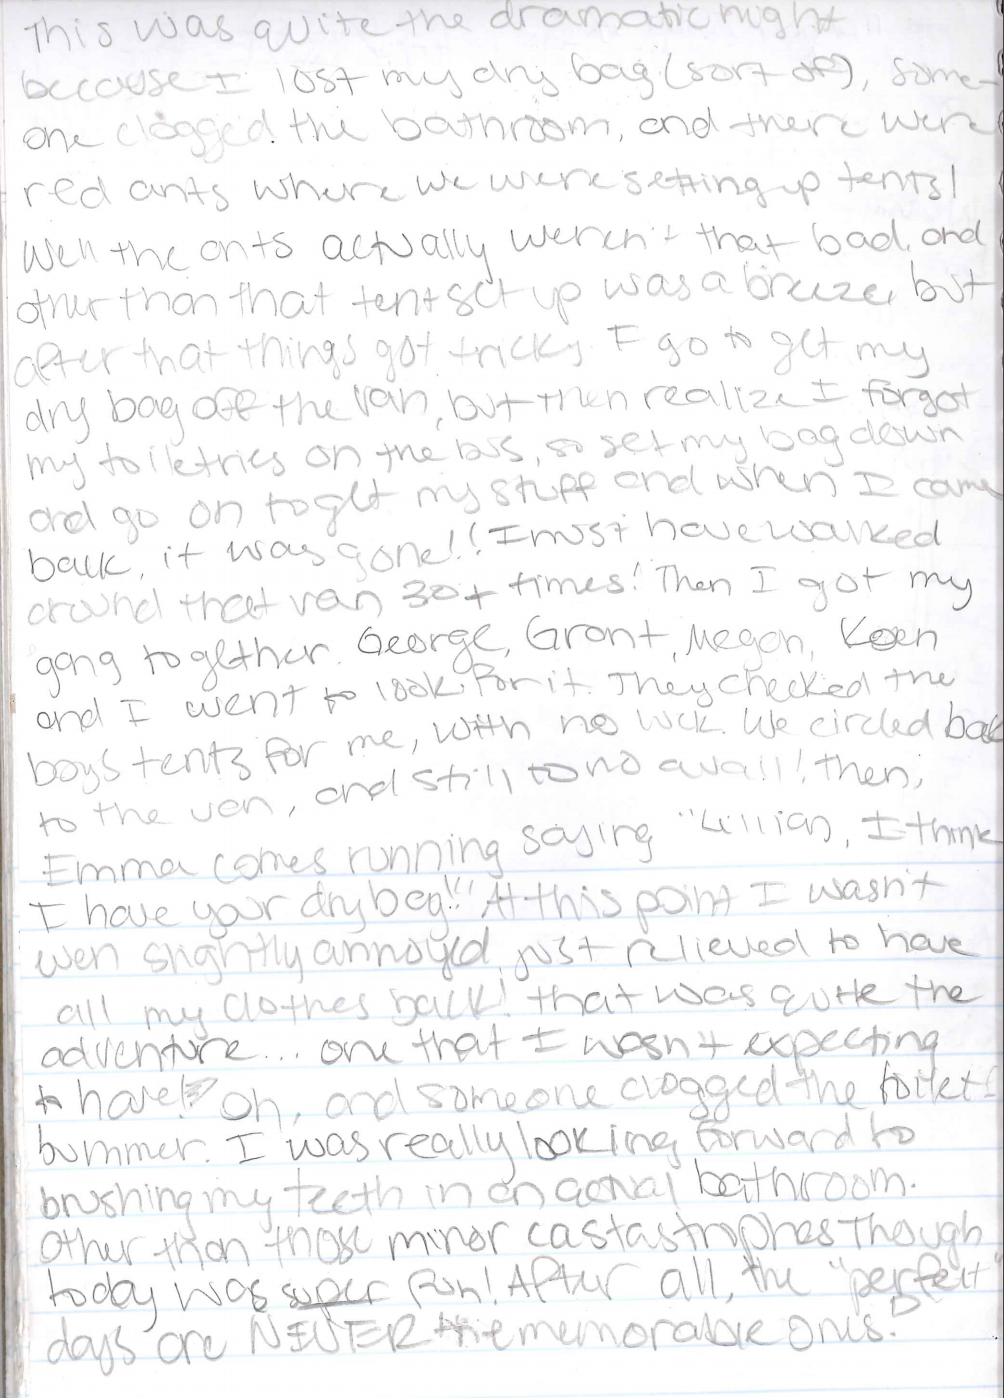 This was quite the dramatic night
because I lost my dry bag (sort of), some-
one clogged the bathroom, and there were
red ants where we were setting up tents!
Well the ants actually weren't that bad, and
other than that tent set up was a breeze, but
after that things got tricky. I go to get my
dry bag off the van, but then realize I forgot
my toiletries on the bus, so set my bag down
and go on to get my stuff and when I came
back, it was gone!! I must have walked
around that van 30+ times! Then I got my
gang together. George, Grant, Megan, Koen
and I went to look for it. They checked the
boys tents for me, with no luck. We circled back
to the van, and still to no avail! then,
Emma comes running saying "Lillian, I think
I have your dry bag!!" At this point I wasn't
even slightly annoyed, just relieved to have
all my clothes back! that was quite the
adventure... one that I wasn't expecting
to have!! Oh, and someone clogged the toilet-
bummer. I was really looking forward to
brushing my teeth in an actual bathroom.
Other than those minor castastrophes though
today was super fun! After all, the "perfect"
days are NEVER the memorable ones. :D